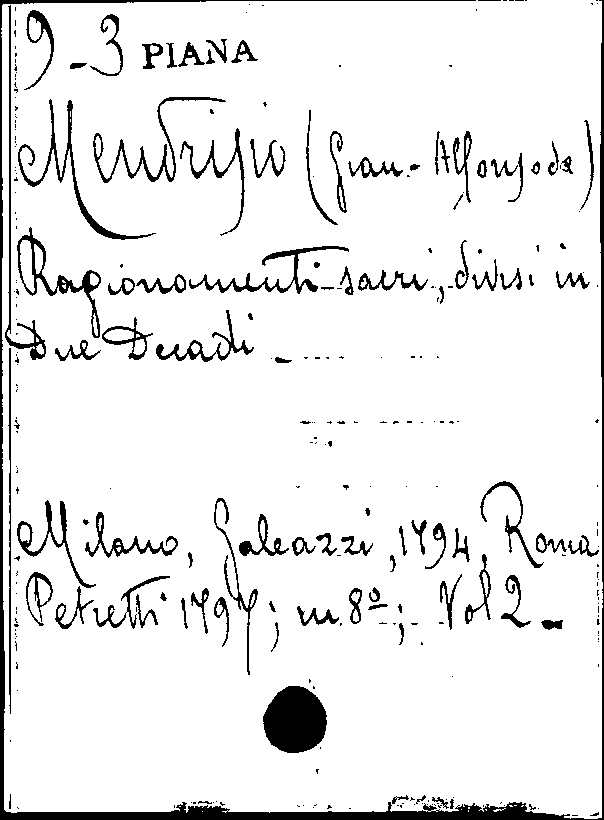 9-3 PIANA
Mendrisio (Gian-Alfonso da)
Ragionamenti sacri, divisi in
Due Decadi -
Milano, Galeazzi, 1794, Roma
Petretti 1797; in 8º; Vol 2 -